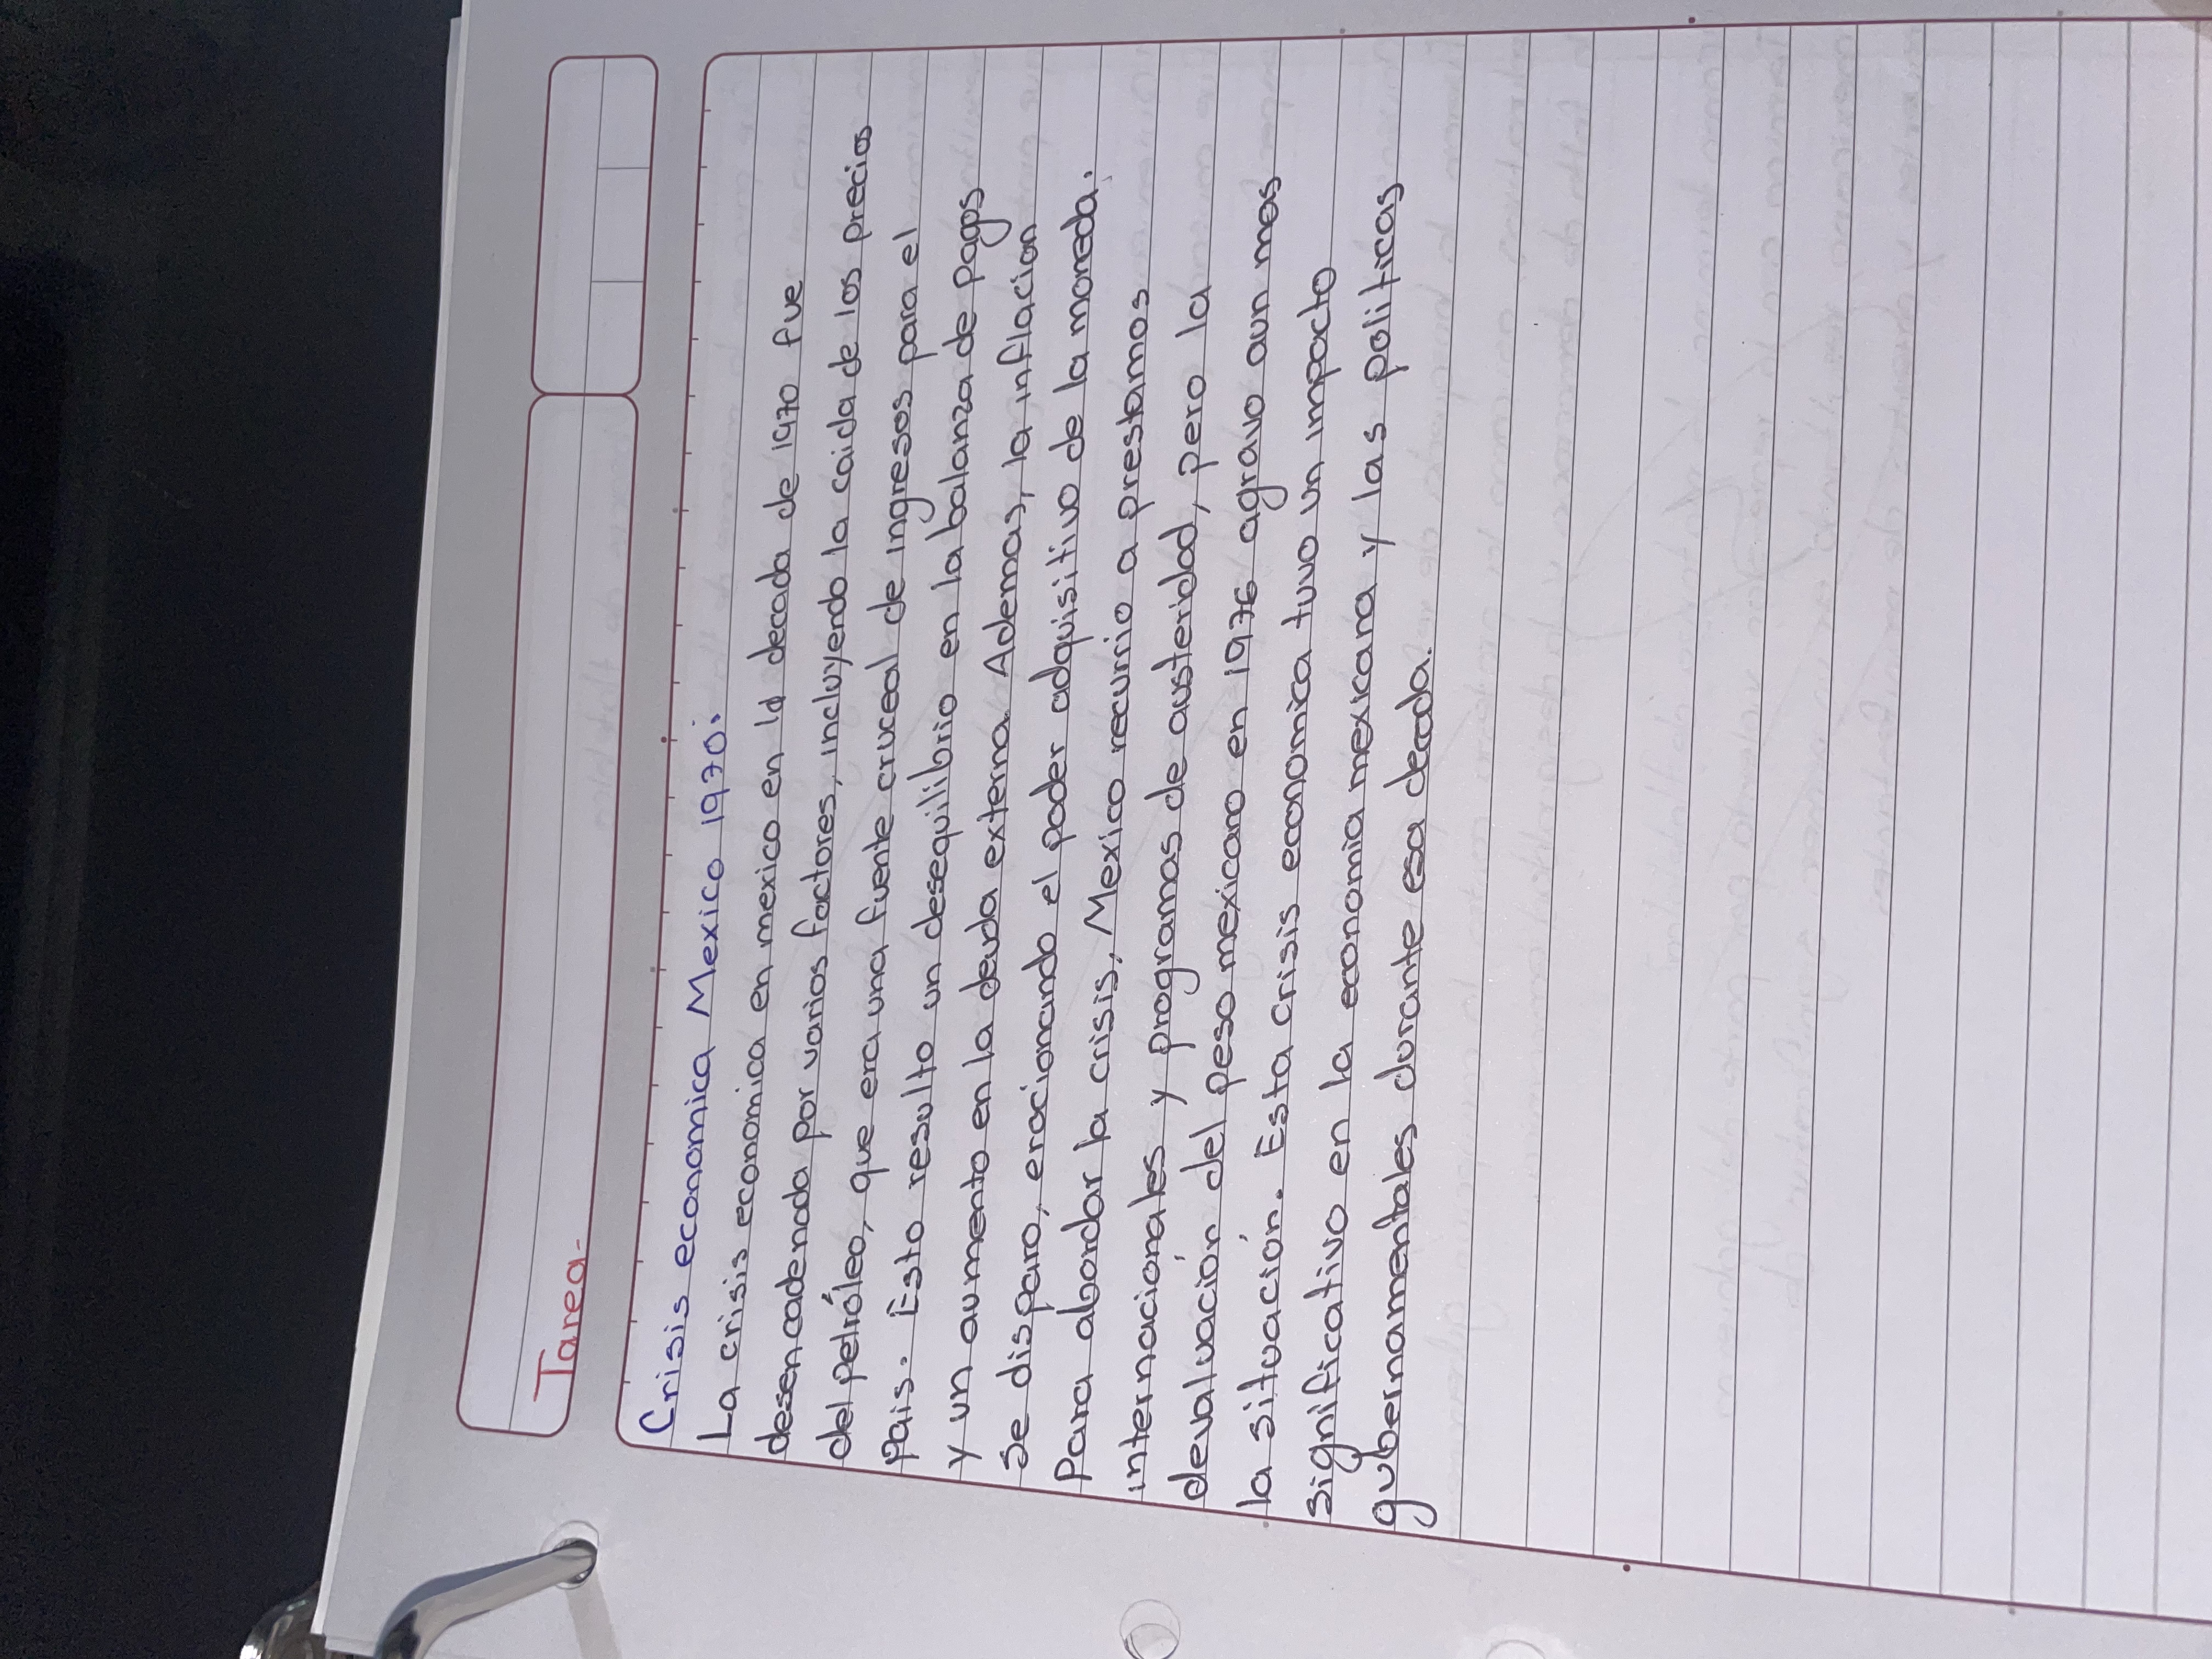 Tarea-
Crisis economica Mexico 1970:
La crisis economica en mexico en la decada de 1970 fue
desencadenada por varios factores, incluyendo la caida de los precios
del petróleo, que era una fuente cruceal de ingresos para el
pais. Esto resulto un desequilibrio en la balanza de pagos
y un aumento en la deuda externa. Ademas, la inflacion
se disparo, erocionando el poder adquisitivo de la moneda.
Para abordar la crisis, Mexico recurrio a prestamos
internacionales y programas de austeridad, pero la
devaluación del peso mexicano en 1976 agravo aun mas
la situación. Esta crisis economica tuvo un impacto
significativo en la economia mexicana y las politicas
gubernamentales durante esa decada.